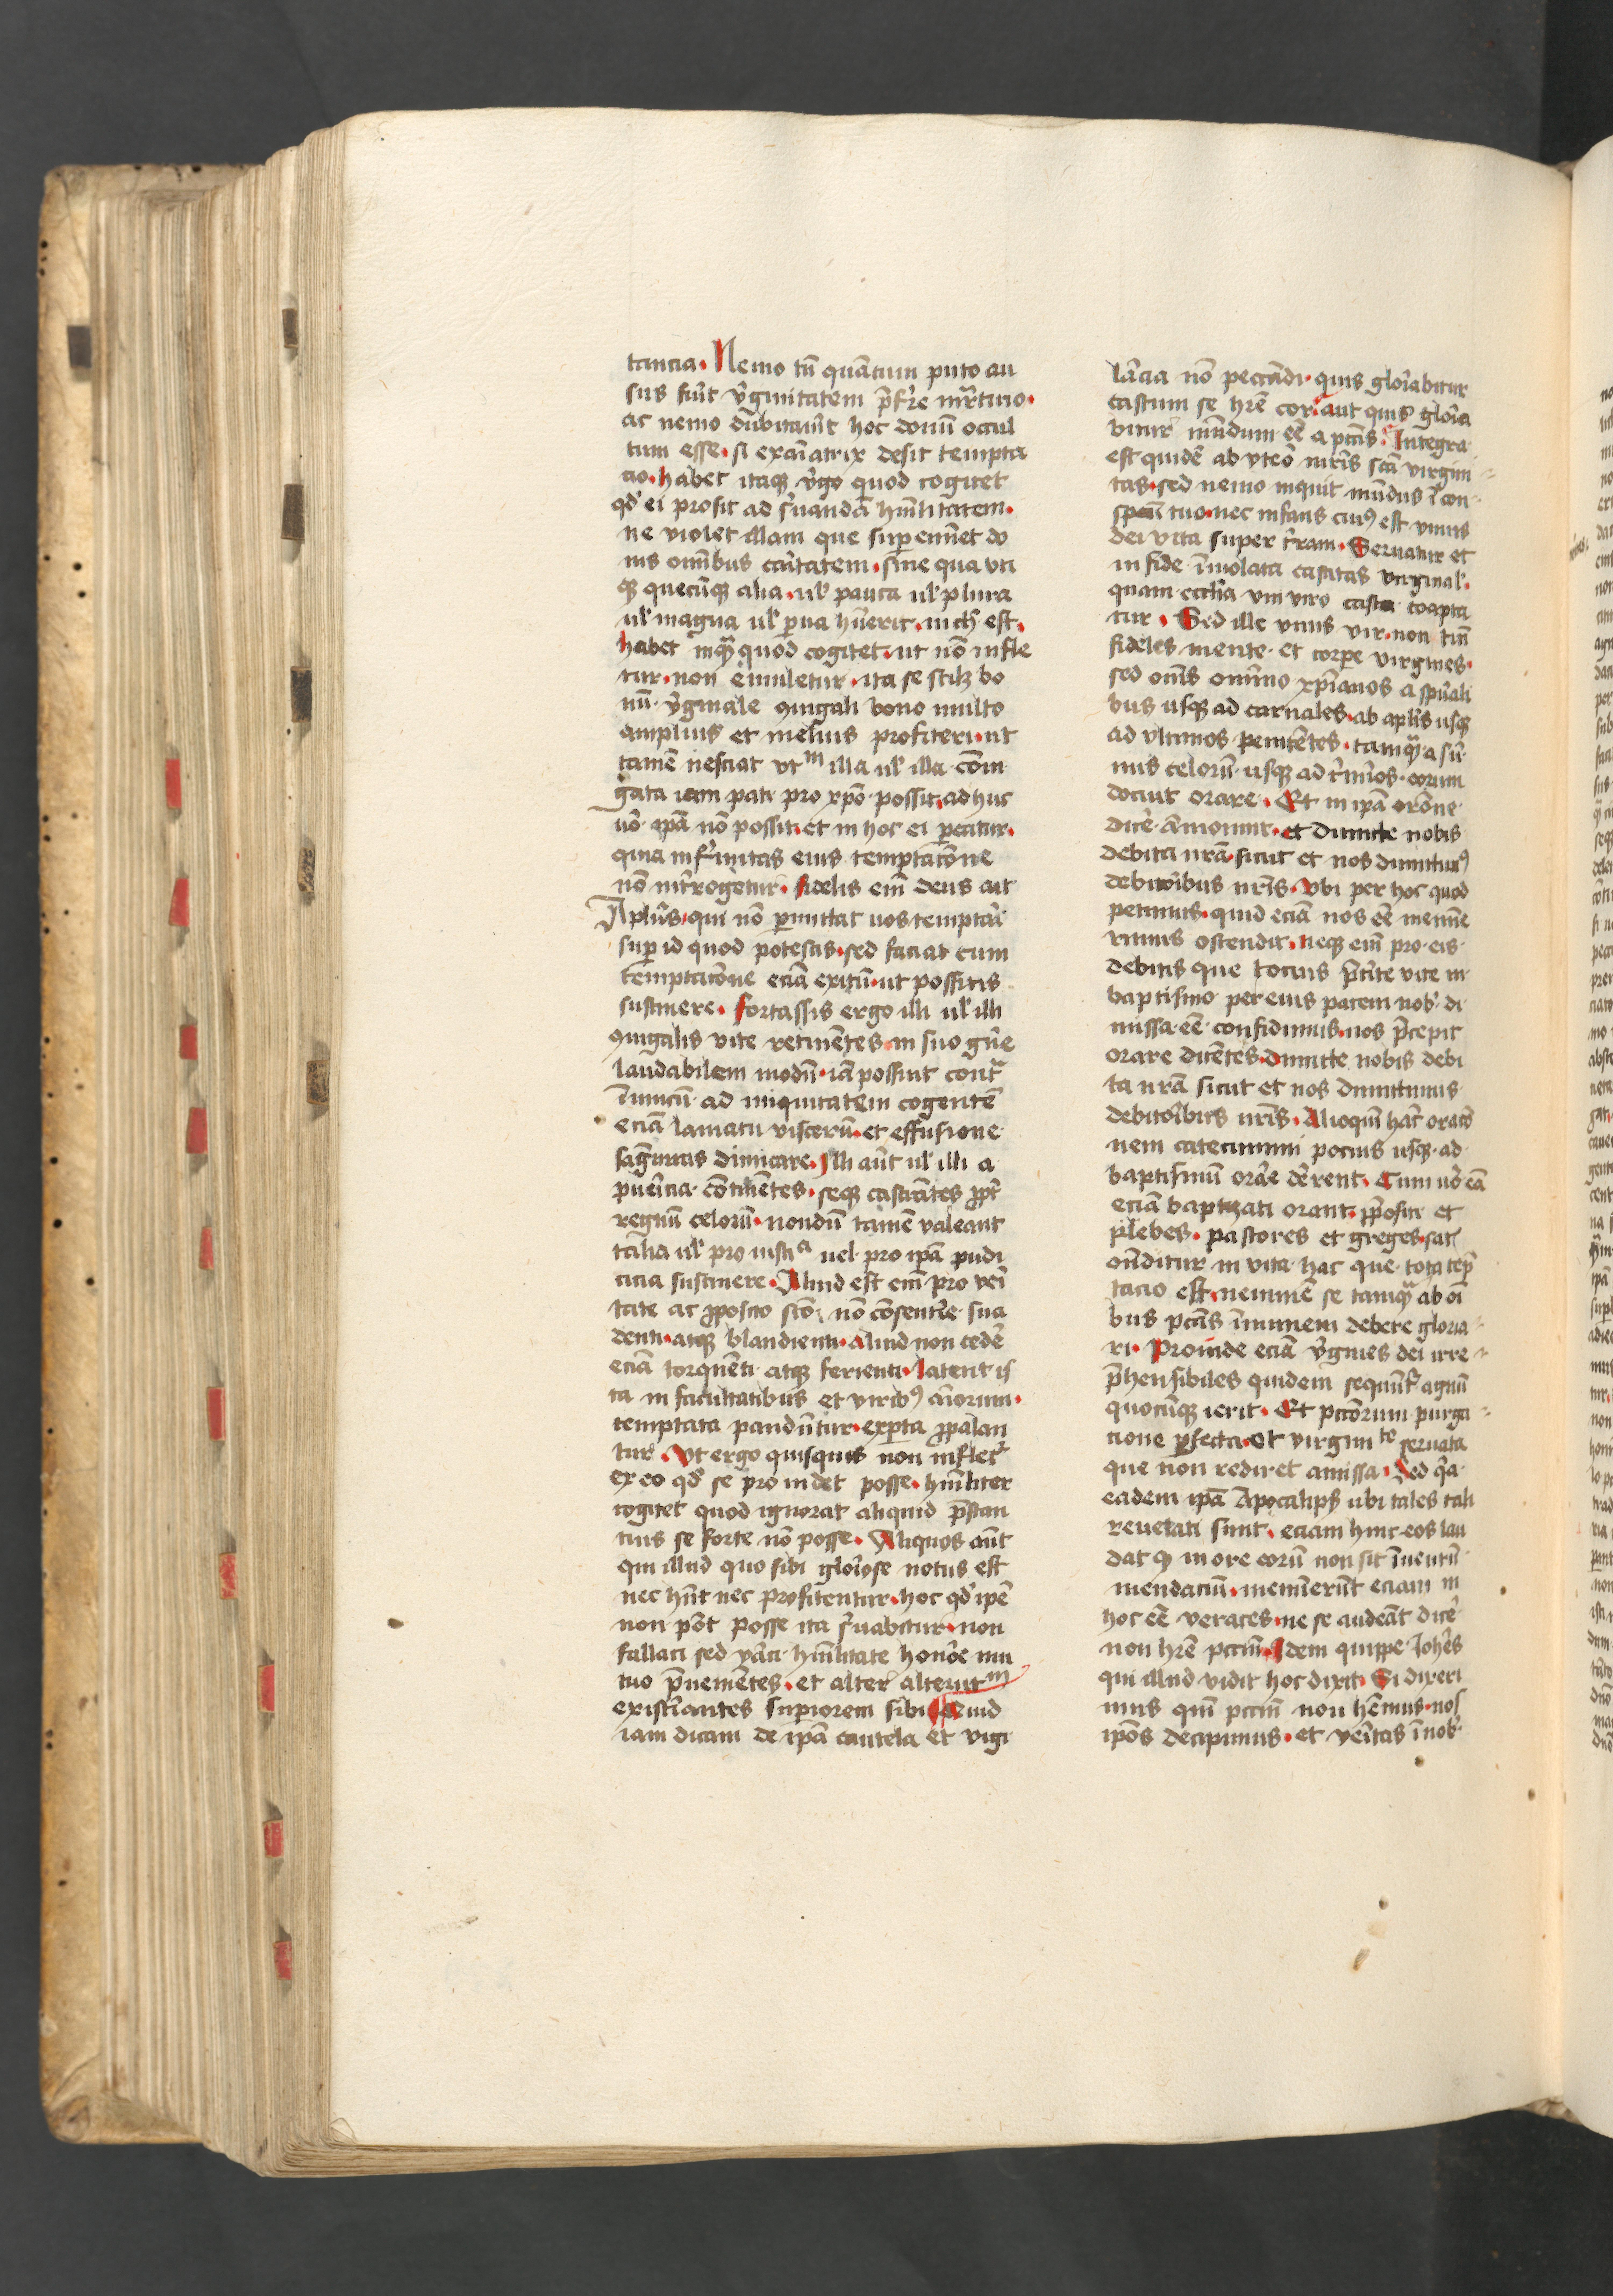 tancia. Nemo tn̄ quātum puto au
sus fuīt v̓ginitatem p̄fr̓e mr̓tirio.
ac nemo dubitauīt hoc donū occul
tum esse. si exāīatrix desit tempta
cio. habet itaqꝫ v̓go quod cogitet
qd̓ ei prosit ad s̓uandā hūilitatem.
ne violet illam que supereminet do
nis omībus caritatem. sine qua uti
qꝫ quecūqꝫ alia. ul̓ pauca ul̓ plura
ul̓ magna ul̓ p̱ua hūerit. nich̓ est.
habet inqᷓ quod cogitet. ut nō infle
tur. non emuletur. ita se scilꝫ bo
nū v̓ginale ꝯiugali bono multo
amplius et melius profiteri. ut
tamē nesciat vtᵐ illa ul̓ illa coniu
gata iam pati pro xp̄o possit. adhuc
uō ip̄a nō possit. et in hoc ei p̱catur.
quia infirmitas eius temptacōne
nō int̓rogetur. fidelis eīm deus ait
Apl̄us. qui nō p̱mittat uos temptari
sup̱ id quod potestis. sed faciat cum
temptacōne eciā exitū. ut possitis
sustinere. fortassis ergo illi ul̓ illi
ꝯiugalis vite retinētes in suo gn̄e
laudabilem modū. iā possint contᷓ
īimicū ad iniquitatem cogentē
eciā laniatu viscerū. et effusione
sāguinis dimicare. Illi aūt ul̓ illi a
pueīcia contīentes. seqꝫ castrātes ꝓpt̓
regnū celorū. nondū tamē valeant
talia ul̓ pro iusticᵃ uel pro ip̄a pudi
cicia sustinere. Aliud est eīm pro veri
tate ac ꝓposito scō. nō cōsentīre sua
denti. atqꝫ blandienti. aliud non cedē
eciā torquēti atqꝫ ferienti. latent is
ta in facultatibus et virib⁹ aīorum.
temptata pandūtur. exp̱ta ꝓpalan
tur. Vt ergo quisquis non inflet̓
ex eo qd̓ se pro uidet posse. hūiliter
cogitet quod ignorat aliquid p̄stan
tius se forte nō posse. Aliquos aūt
qui illud quo sibi glorīose notus est
nec hn̄t nec profitentur. hoc qd̓ ip̄e
non pōt posse ita s̓uabitur. non
fallaci sed v̓aci hūilitate honōe mu
tuo p̄uenietes. et alter alterutᵐ
existīantes sup̱iorem sibi Quid
iam dicam de ip̄a cautela et vigi
lācia nō peccādi. quis glorīabitur
castum se hr̄e cor. aut quis gloria
bitur mūdum eē a pctīs. Integra
est quidē ab vtero mr̄is scā virgini
tas. sed nemo inquit mūdus ī con
spectu tuo. nec infans cui⁹ est vnius
dei vita super t̓ram. Seruatur et
in fide īuiolata castitas virginal̓.
quam eccl̄ia vni viro casta coapta
tur. Sed ille vnus vir. non tm̄
fideles mente et corpe virgines.
sed om̄s omīno xp̄ianos a spūali
bus usqꝫ ad carnales. ab apl̄is usqꝫ
ad vltimos penitētes. tamqᷓ a sū
mis celorū usqꝫ ad t̓mīos eorum
docuit orare. Et in ip̄a orōne
dicē āmonuit. et dimitte nobis
debita nrā. sicut et nos dimittim⁹
debitorībus nr̄is. Vbi per hoc quod
petimus. quid eciā nos eē memīe
rimus ostendit. neqꝫ eīm pro eis
debitis que tocius p̄terīte vite in
baptismo per eius pacem nob̓ di
missa eē confidimus. nos p̄cepit
orare dicētes. dimitte nobis debi
ta nrā sicut et nos dimittimus
debitorībus nr̄is. Alioquī hāc oracō
nem catecumini pocius usqꝫ ad
baptismū orāre dēberent. Cum uō eā
eciā baptizati orant. ꝓpositi et
plebes. pastores et greges. satꝭ
ōnditur in vita hac que tota tep̄
tacio est. neminē se tamqᷓ ab oī
bus pctīs īmunem debere gloria
ri. Proinde eciā v̓gines dei irre
p̄hensibiles quidem sequūt̓ agnū
quocūqꝫ ierit. Et pctōrum purga
cione p̱fecta. et virginiᵗᵉ seruata
que non rediret amissa. Sed qᷓa
eadem ip̄a Apocalips̓ ubi tales tali
reuelati sunt. eciam hinc eos lau
dat qꝫ in ore eorū non sit īuentū
mendaciū. meminerīt eciam in
hoc eē veraces. ne se audeāt dicē
non hr̄e pctm̄. Idem quippe Ioh̄es
qui illud vidit hoc dixit. Si dixeri
mus quī pctm̄ non hēmus. nos
ip̄os decipimus. et verītas ī nob̓